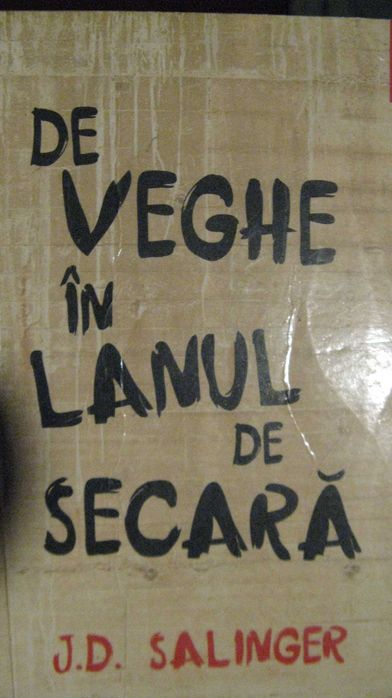 DE
VEGHE
ÎN
LANUL
DE
SECARĂ
J.D. SALINGER